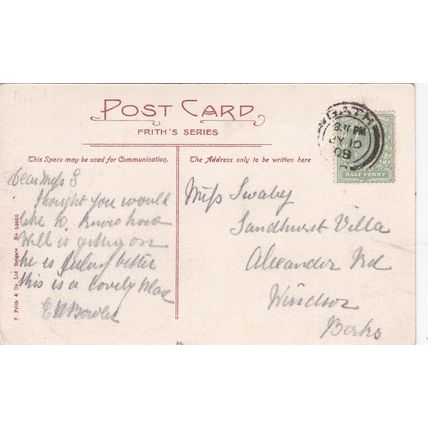 POST CARD
FRITH'S SERIES
This Space may be used for Communication.
The Address only to be written here
Dear Miss S
thought you would
like to know how
Will is getting on
he is feeling better
this is a lovely place
E M Bowles
Miss Swaby
Sandhurst Villa
Alexander Rd
Windsor
Berks
BATH
PM
JY 10
09
HALF PENNY
F. Frith & Co. Ltd. Reigate.